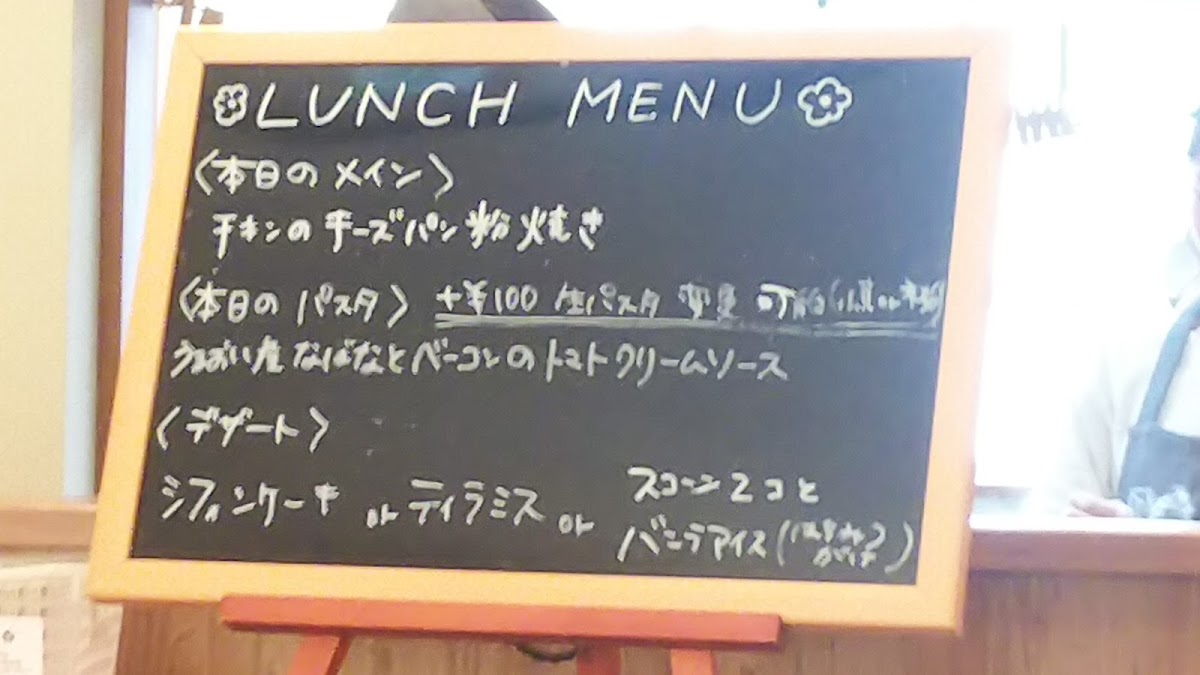 LUNCH MENU
〈本日のメイン〉
チキンのチーズパン粉焼き
〈本日のパスタ〉 +¥100 生パスタ変更可能
なばなとベーコンのトマトクリームソース
〈デザート〉
シフォンケーキ or ティラミス or スコーン2コと
バニラアイス